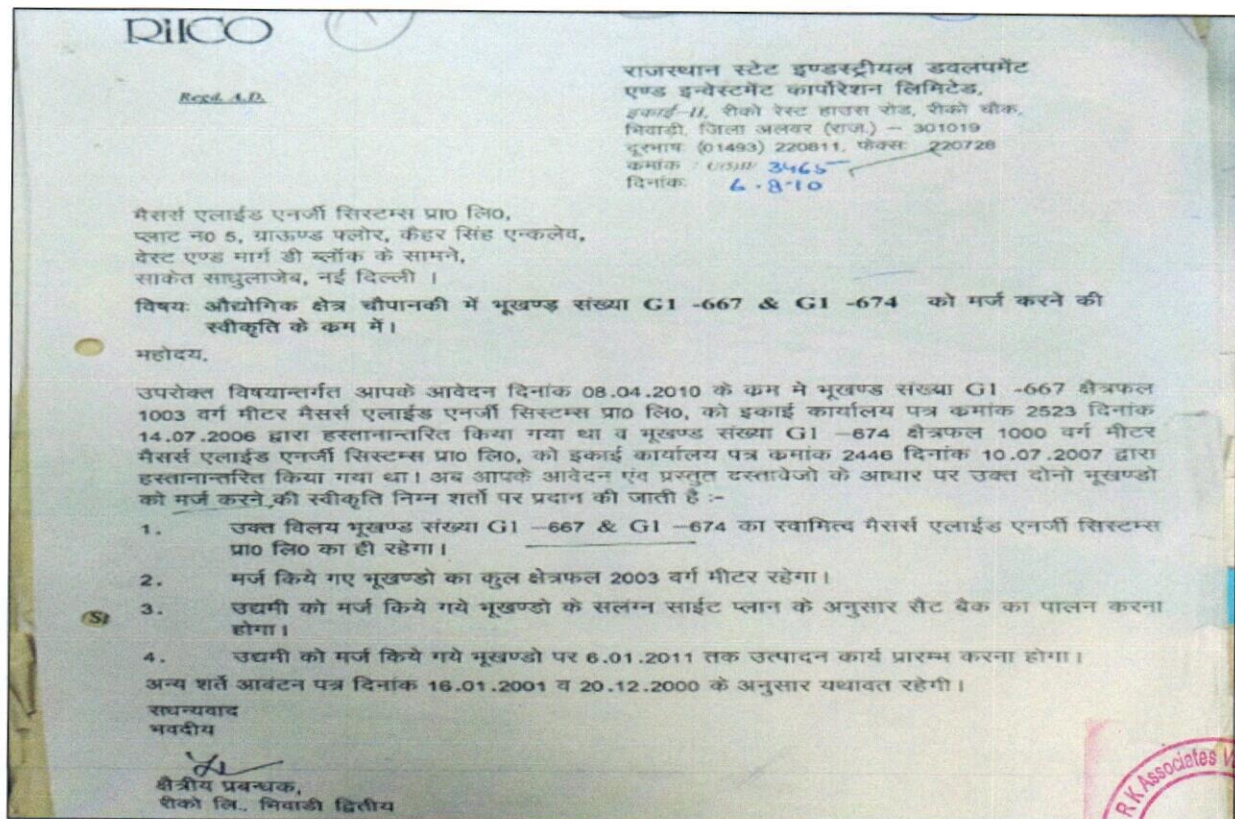 RIICO
Regd. A.D.
राजस्थान स्टेट इण्डस्ट्रीयल डवलपमेंट
एण्ड इन्वेस्टमेंट कार्पोरेशन लिमिटेड,
इकाई-II, रीको रेस्ट हाउस रोड, रीको चौक,
भिवाड़ी, जिला अलवर (राज.) – 301019
दूरभाष (01493) 220811, फेक्स: 220728
कमांक : 3465
दिनांक: 6.8.10
मैसर्स एलाईड एनर्जी सिस्टम्स प्रा0 लि0,
प्लाट न0 5, ग्राऊण्ड फ्लोर, कैहर सिंह एन्कलेव,
वेस्ट एण्ड मार्ग डी ब्लॉक के सामने,
साकेत साधुलाजेब, नई दिल्ली ।
विषयः औद्योगिक क्षेत्र चौपानकी में भूखण्ड़ संख्या G1 -667 & G1 -674 को मर्ज करने की
स्वीकृति के कम में।
महोदय,
उपरोक्त विषयान्तर्गत आपके आवेदन दिनांक 08.04.2010 के कम मे भूखण्ड संख्या G1 -667 क्षैत्रफल
1003 वर्ग मीटर मैसर्स एलाईड एनर्जी सिस्टम्स प्रा0 लि0, को इकाई कार्यालय पत्र कमांक 2523 दिनांक
14.07.2006 द्वारा हस्तानान्तरित किया गया था व भूखण्ड संख्या G1 –674 क्षैत्रफल 1000 वर्ग मीटर
मैसर्स एलाईड एनर्जी सिस्टम्स प्रा0 लि0, को इकाई कार्यालय पत्र कमांक 2446 दिनांक 10.07.2007 द्वारा
हस्तानान्तरित किया गया था। अब आपके आवेदन एंव प्रस्तुत दस्तावेजो के आधार पर उक्त दोनो भूखण्डो
को मर्ज करने की स्वीकृति निम्न शर्तो पर प्रदान की जाती है :-
1. उक्त विलय भूखण्ड संख्या G1 –667 & G1 –674 का स्वामित्व मैसर्स एलाईड एनर्जी सिस्टम्स
प्रा0 लि0 का ही रहेगा।
2. मर्ज किये गए भूखण्डो का कुल क्षेत्रफल 2003 वर्ग मीटर रहेगा।
3. उद्यमी को मर्ज किये गये भूखण्डो के सलंग्न साईट प्लान के अनुसार सैट बैक का पालन करना
होगा।
4. उद्यमी को मर्ज किये गये भूखण्डो पर 6.01.2011 तक उत्पादन कार्य प्रारम्भ करना होगा।
अन्य शर्ते आवंटन पत्र दिनांक 16.01.2001 व 20.12.2000 के अनुसार यथावत रहेगी।
सधन्यवाद
भवदीय
क्षैत्रीय प्रबन्धक,
रीको लि., भिवाडी द्वितीय
R K Associates